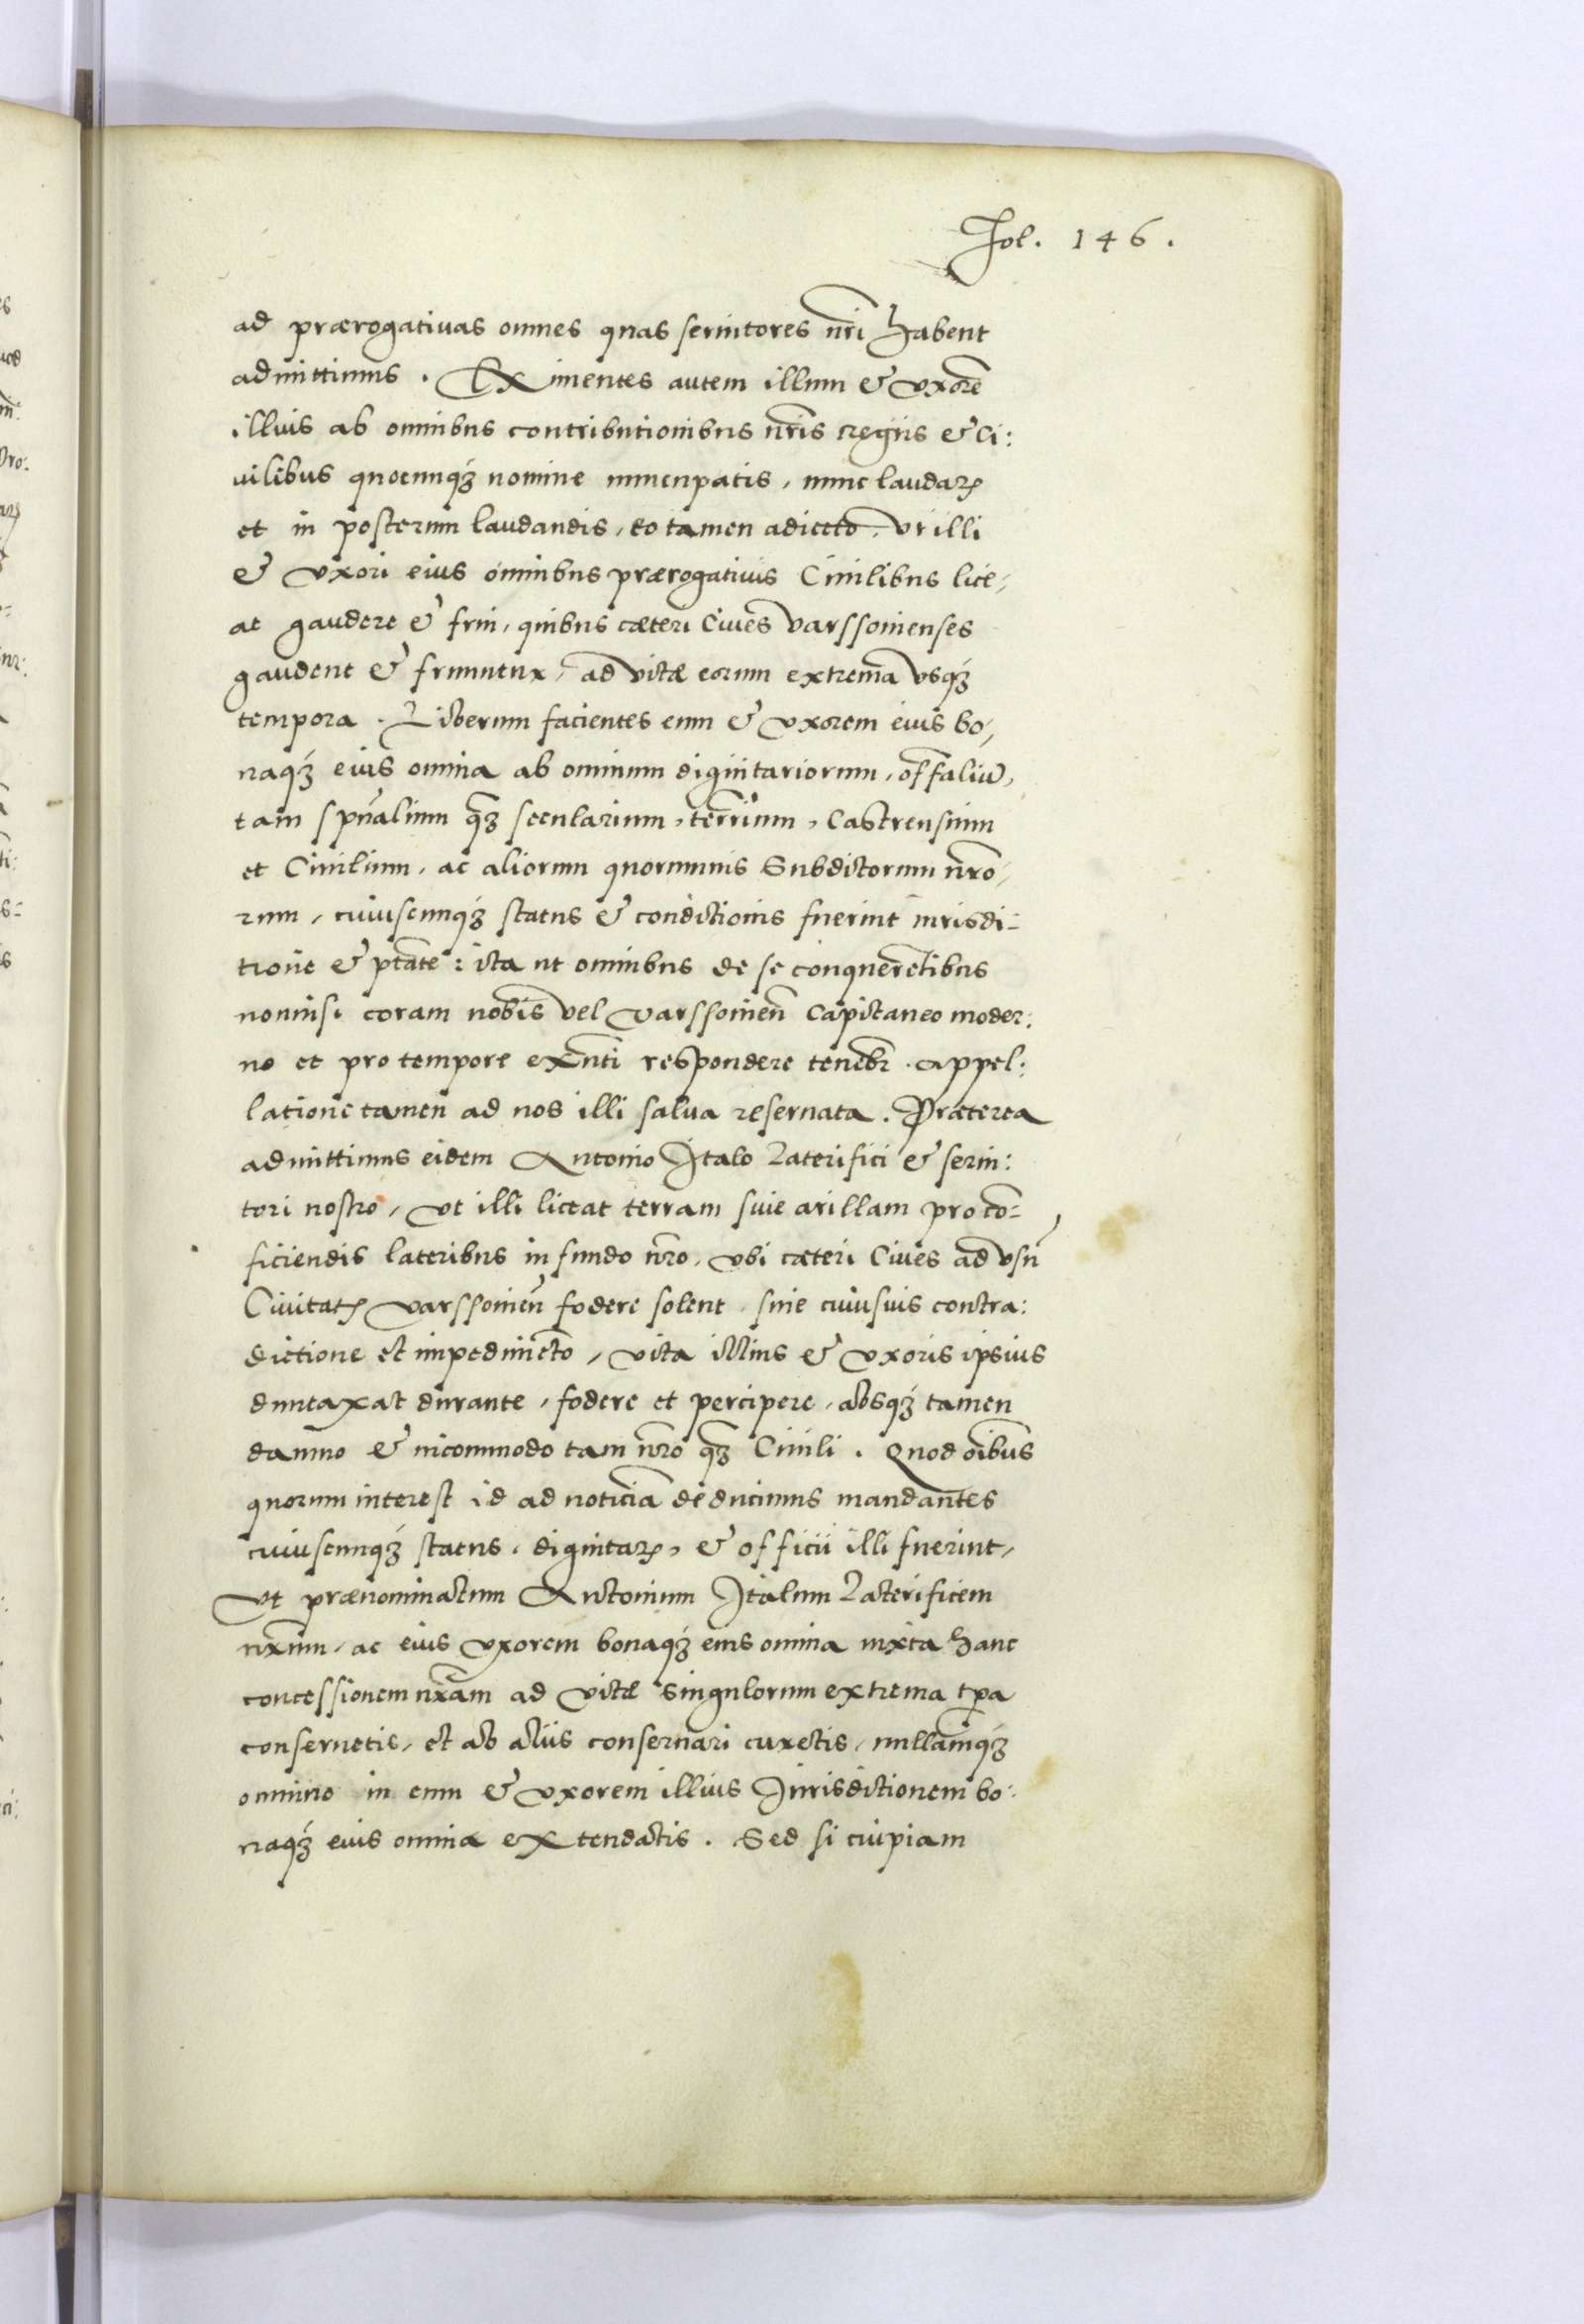 Fol. 146.
ad prærogativas omnes quas servitores nr̄i habent
admittimus. Eximentes autem illum & uxorē
illius ab omnibus contributionibus nr̄is Regiis & Ci:
vilibus quocunqꝫ nomine nuncupatis, nunc laudatꝭ
et in posterum laudandis, eo tamen adiecto. Vt illi
& Vxori eius omnibus prærogativis Civilibus lice,
at gaudere & frui, quibus cæteri Cives Varssovienses
gaudent & fruuntur, ad vitæ eorum extrema usqꝫ
tempora. Liberum facientes eum & uxorem eius bo,
naqꝫ eius omnia ab omnium dignitariorum, offaliū,
tam spūalium qꝫ secularium, terr̄ium, Castrensium
et Civilium, ac aliorum quorumvis Subditorum nr̄o,
rum, cuiuscunqꝫ status & conditionis fuerint iurisdi=
tione & ptāte: ita ut omnibus de se conquerētibus
nonnisi coram nobis vel Varssovien̄ Capitaneo moder:
no et pro tempore exn̄ti respondere tenebr̄. Appel:
latione tamen ad nos illi salva reservata. Præterea
admittimus eidem Antonio Italo Laterifici & servi:
tori nostro, Vt illi liceat terram sive arillam pro cō=
ficiendis lateribus in fundo nr̄o, ubi cæteri Cives ad usū
Civitatꝭ Varssovien̄ fodere solent, sine cuiusvis contra:
dictione et impedimēto, vita illius & uxoris ipsius
duntaxat durante, fodere et percipere, absqꝫ tamen
damno & incommodo tam nr̄o qꝫ Civili. Quod oībus
quorum interest id ad noticiā deducimus mandantes
cuiuscunqꝫ status, dignitatꝭ, & officii illi fuerint,
Vt prænominatum Antonium Italum Laterificem
nr̄um, ac eius uxorem bonaqꝫ eius omnia iuxta hanc
concessionem nr̄am ad vitæ singulorum extrema tp̄a
conservetis, et ab aliis conservari curetis, nullamqꝫ
omnino in eum & uxorem illius Iurisditionem bo:
naqꝫ eius omnia extendatis. Sed si cuipiam